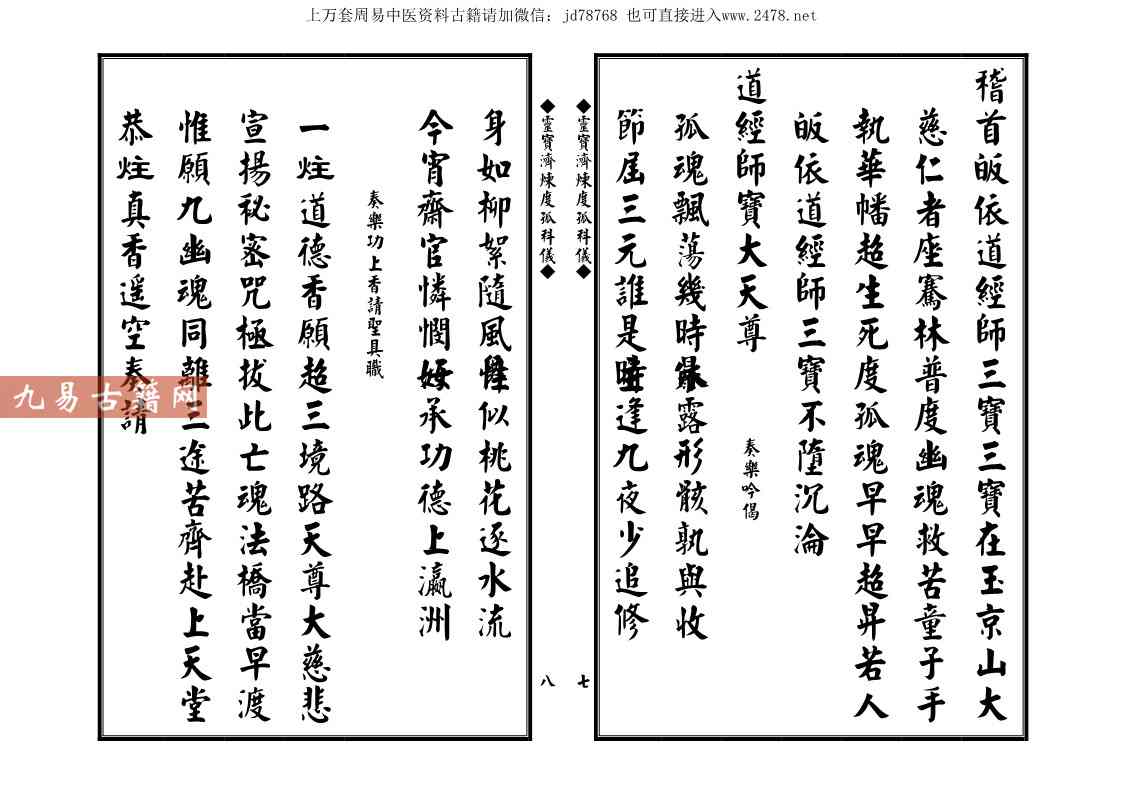 上万套周易中医资料古籍请加微信：jd78768 也可直接进入www.2478.net
稽首皈依道經師三寶三寶在玉京山大
慈仁者座騫林普度幽魂救苦童子手
執華幡超生死度孤魂早早超昇若人
皈依道經師三寶不墮沉淪
道經師寶大天尊 奏樂吟偈
孤魂飄蕩幾時休暴露形骸孰與收
節屆三元誰是主時逢九夜少追修
◆靈寶濟煉度孤科儀◆ 七
◆靈寶濟煉度孤科儀◆ 八
身如柳絮隨風舞性似桃花逐水流
今宵齋官憐憫汝好承功德上瀛洲
奏樂功上香請聖具職
一炷道德香願超三境路天尊大慈悲
宣揚祕密咒極拔此亡魂法橋當早渡
惟願九幽魂同離三途苦齊赴上天堂
恭炷真香遥空奏請
九易古籍网